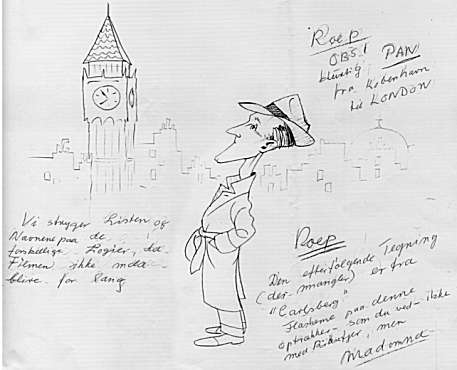 Roep
OBS!
hurtig PAN
fra København
til LONDON
Vi stryger Listen og
Navnene paa de
forskellige Logier, da
Filmen ikke maa
blive for lang
Roep
Den efterfølgende Tegning
(der mangler) er fra
"Carlsberg"
Flaskerne paa denne
optrækker som du ved ikke
med Proptrækker, men
Madonna